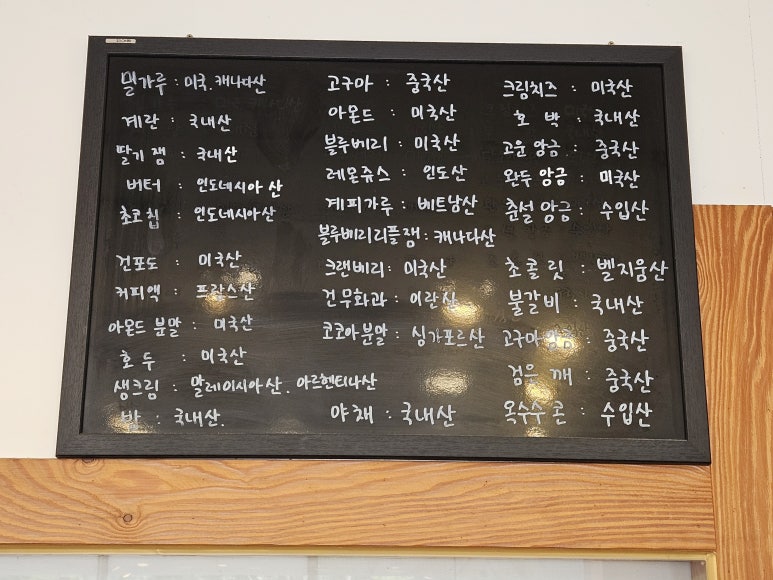 밀가루 : 미국. 캐나다산
계란 : 국내산
딸기 잼 : 국내산
버터 : 인도네시아 산
초코칩 : 인도네시아산
건포도 : 미국산
커피액 : 프랑스산
아몬드 분말 : 미국산
호두 : 미국산
생크림 : 말레이시아산. 아르헨티나산
밤 : 국내산.
고구마 : 중국산
아몬드 : 미국산
블루베리 : 미국산
레몬쥬스 : 인도산
계피가루 : 베트남산
블루베리리플잼 : 캐나다산
크랜베리 : 미국산
건무화과 : 이란산
코코아분말 : 싱가포르산
야채 : 국내산
크림치즈 : 미국산
호 박 : 국내산
고운 앙금 : 중국산
완두 앙금 : 미국산
춘설 앙금 : 수입산
초콜릿 : 벨지움산
불갈비 : 국내산
고구마앙금 : 중국산
검은 깨 : 중국산
옥수수콘 : 수입산